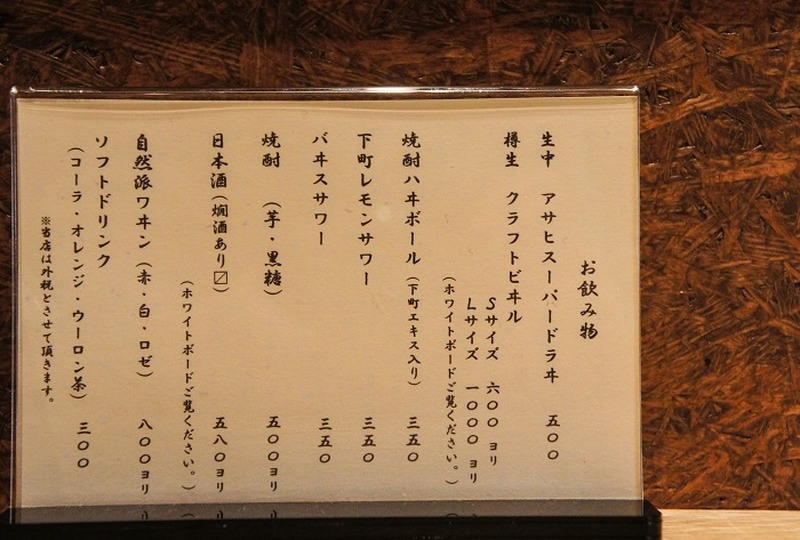 お飲み物
生中 アサヒスーパードラヰ 五〇〇
樽生 クラフトビヰル
Sサイズ 六〇〇ヨリ
Lサイズ 一〇〇〇ヨリ
(ホワイトボードご覧ください。)
焼酎ハヰボール(下町エキス入り) 三五〇
下町レモンサワー 三五〇
バヰスサワー 三五〇
焼酎 (芋・黒糖) 五〇〇ヨリ
日本酒(燗酒あり〼) 五八〇ヨリ
(ホワイトボードご覧ください。)
自然派ワヰン(赤・白・ロゼ) 八〇〇ヨリ
ソフトドリンク
(コーラ・オレンジ・ウーロン茶) 三〇〇
※当店は外税とさせて頂きます。